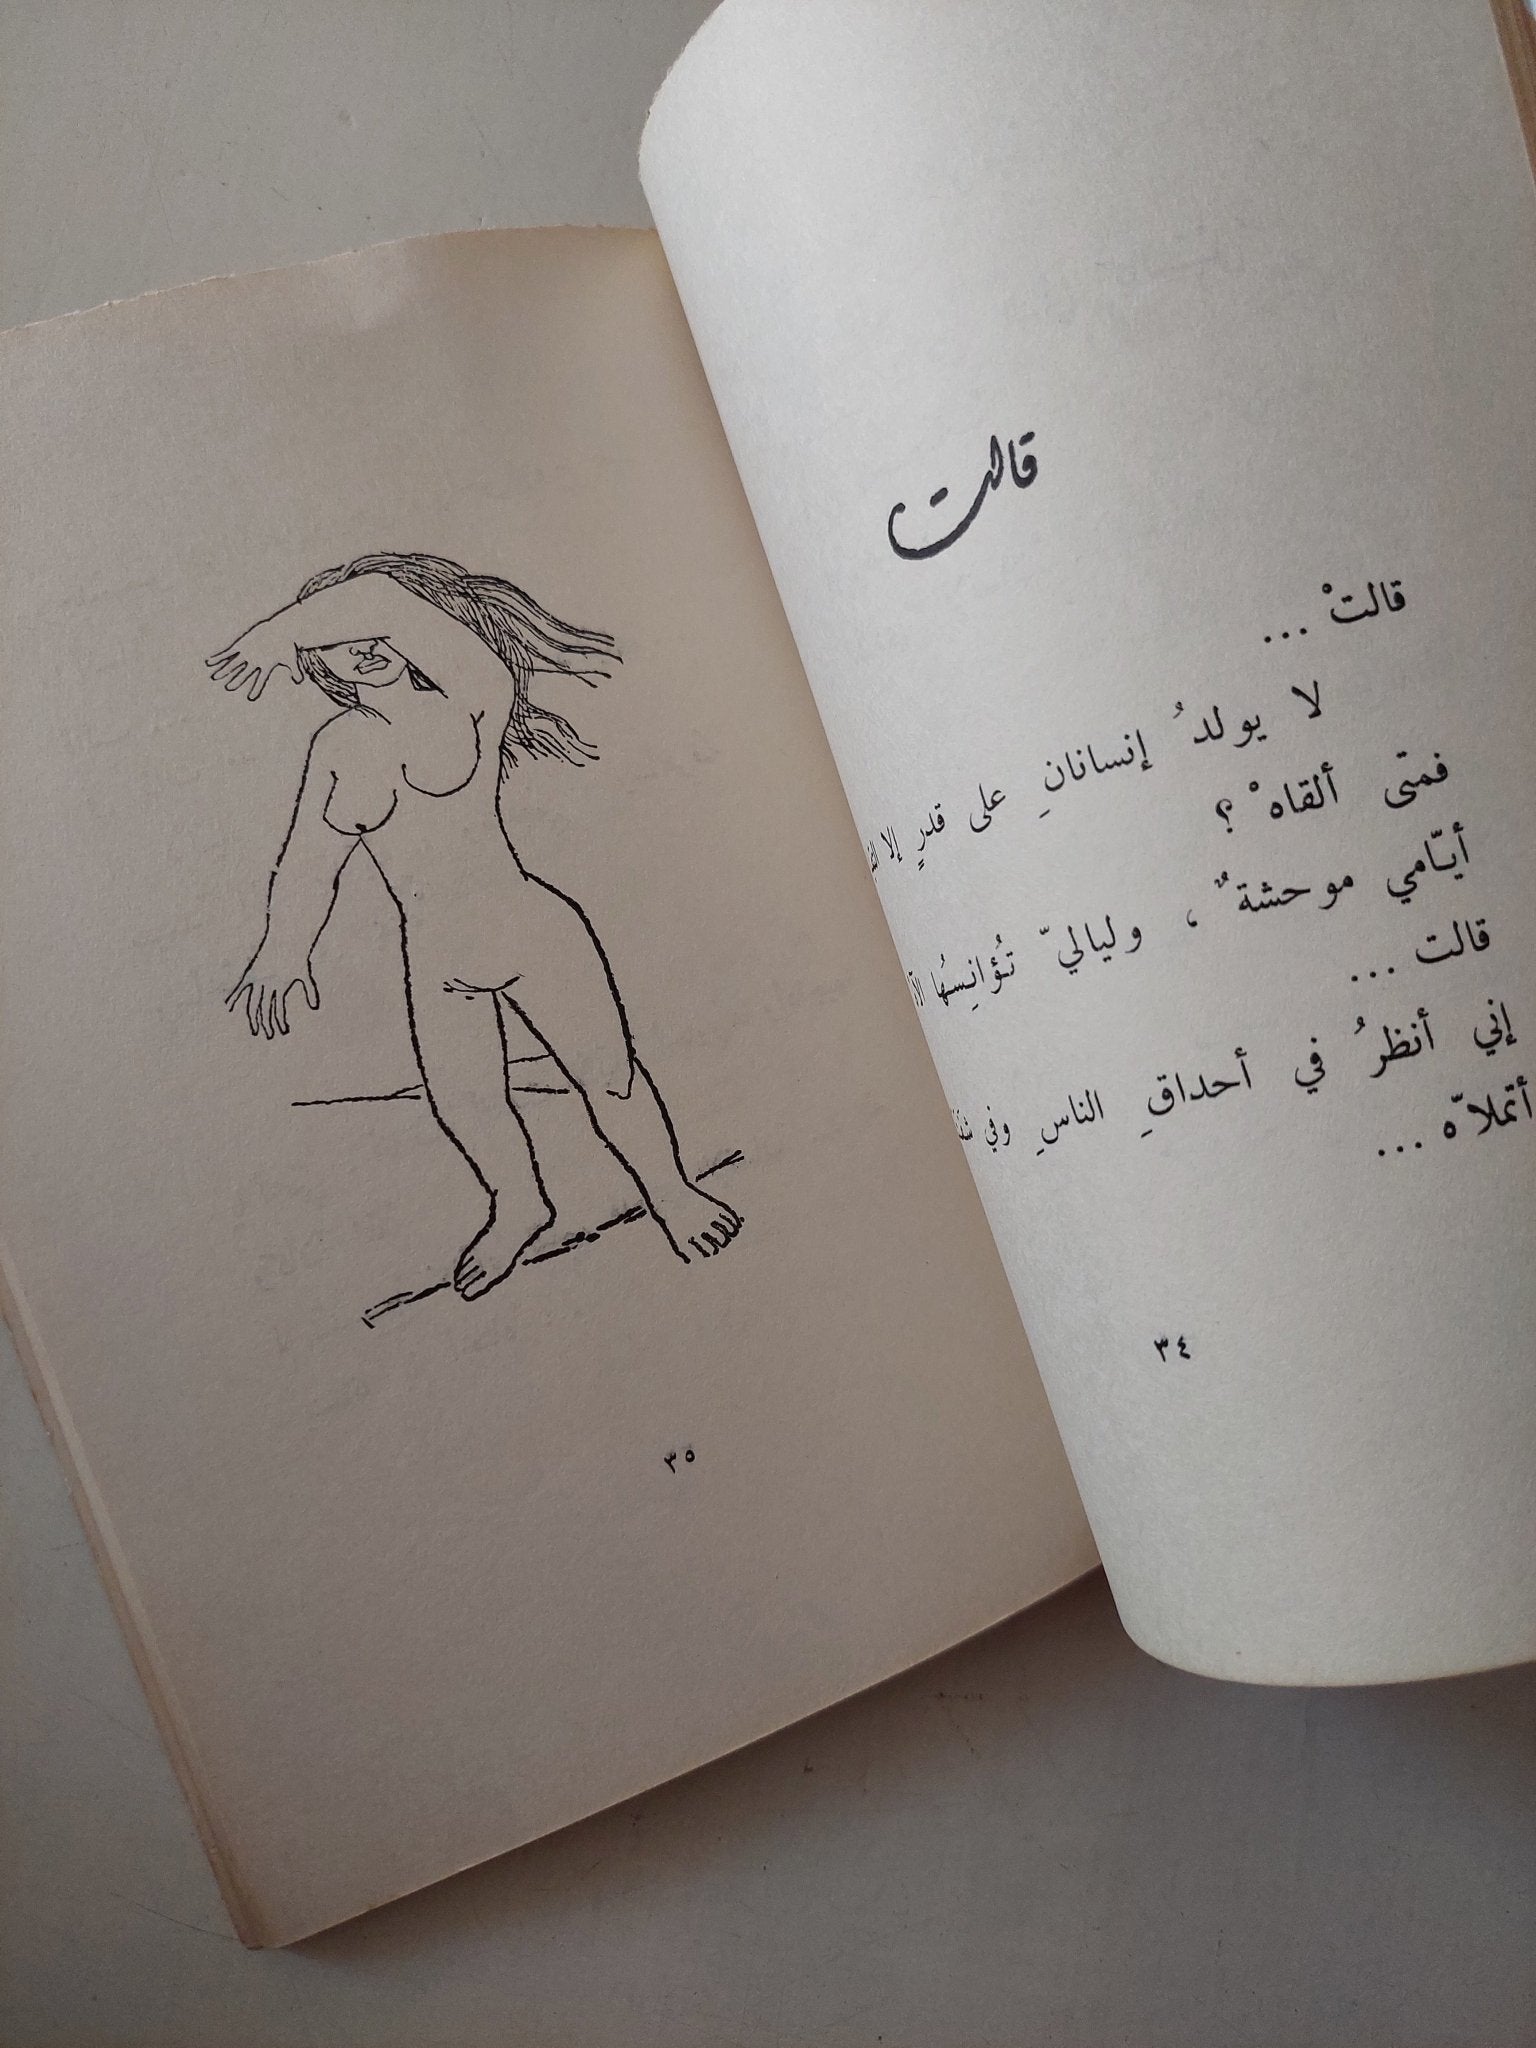 قالت
قالتْ ...
لا يولدُ إنسانانِ على قدرٍ إلا
فمتى ألقاهْ ؟
أيّامي موحشةٌ ، ولياليّ تُؤانِسُها
قالت ...
إني أنظرُ في أحداقِ الناسِ وفي
أتملاّه ...
٣٤
٣٥